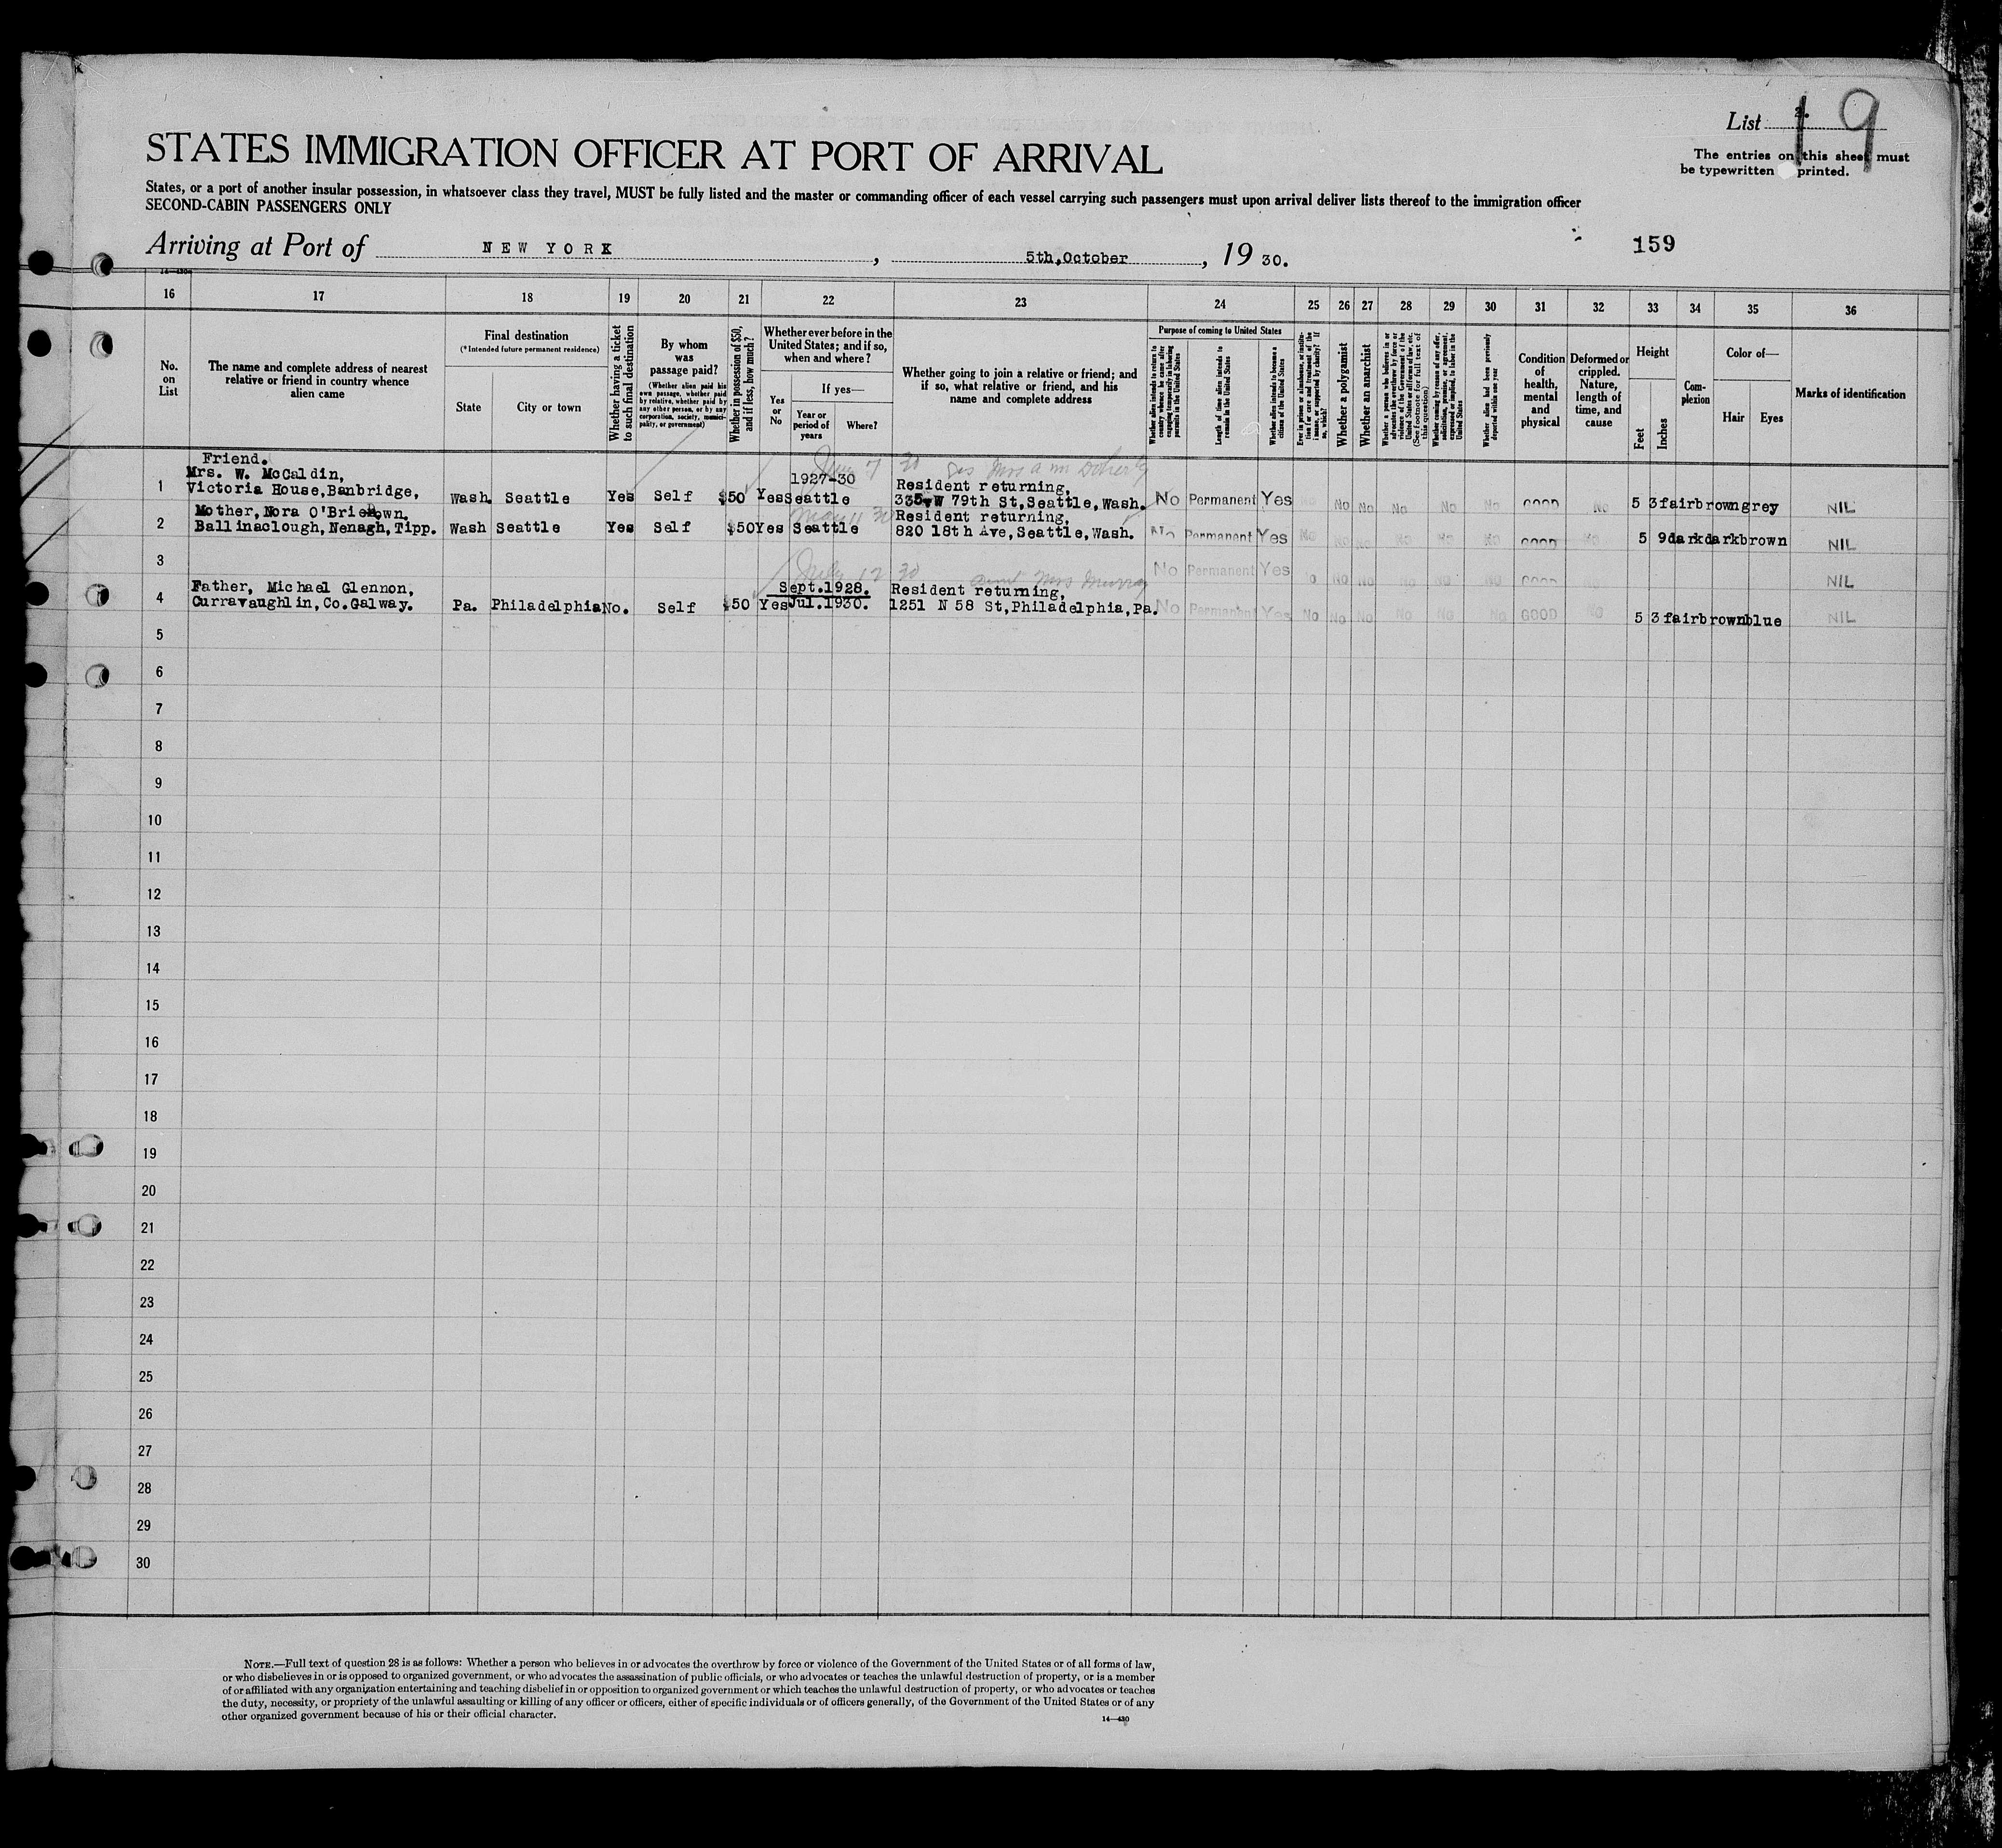 List 2. 19
STATES IMMIGRATION OFFICER AT PORT OF ARRIVAL
The entries on this sheet must
be typewritten printed.
States, or a port of another insular possession, in whatsoever class they travel, MUST be fully listed and the master or commanding officer of each vessel carrying such passengers must upon arrival deliver lists thereof to the immigration officer
SECOND-CABIN PASSENGERS ONLY
Arriving at Port of NEW YORK, 5th,October, 19 30.
159
14—430
16 17 18 19 20 21 22 23 24 25 26 27 28 29 30 31 32 33 34 35 36
No. on List
The name and complete address of nearest relative or friend in country whence alien came
Final destination
(*Intended future permanent residence)
State
City or town
Whether having a ticket to such final destination
By whom was passage paid?
(Whether alien paid his own passage, whether paid by relative, whether paid by any other person, or by any corporation, society, municipality, or government)
Whether in possession of $50, and if less, how much?
Whether ever before in the United States; and if so, when and where?
Yes or No
If yes—
Year or period of years
Where?
Whether going to join a relative or friend; and if so, what relative or friend, and his name and complete address
Purpose of coming to United States
Whether alien intends to return to country whence he came after engaging temporarily in laboring pursuits in the United States
Length of time alien intends to remain in the United States
Whether alien intends to become a citizen of the United States
Ever in prison or almshouse, or institution for care and treatment of the insane, or supported by charity? If so, which?
Whether a polygamist
Whether an anarchist
Whether a person who believes in or advocates the overthrow by force or violence of the Government of the United States or all forms of law, etc. (See footnote for full text of this question)
Whether coming by reason of any offer, solicitation, promise, or agreement, expressed or implied, to labor in the United States
Whether alien had been previously deported within one year
Condition of health, mental and physical
Deformed or crippled. Nature, length of time, and cause
Height
Feet
Inches
Complexion
Color of—
Hair
Eyes
Marks of identification
June 7 30
Friend.
1 Mrs. W. McCaldin,
Victoria House,Banbridge, Wash. Seattle Yes Self $50 Yes 1927-30 Seattle Resident returning, 335 W 79th St,Seattle,Wash. No Permanent Yes No No No No No GOOD No 5 3 fair brown grey NIL
May 11 30
2 Mother,Nora O'Brien, Town.
Ballinaclough,Nenagh,Tipp. Wash Seattle Yes Self $50 Yes Seattle Resident returning, 820 18th Ave,Seattle,Wash. No Permanent Yes No No No No No No GOOD No 5 9 dark dark brown NIL
3 No Permanent Yes No No No No No GOOD NIL
July 12 30 aunt Mrs Murray
4 Father, Michael Glennon,
Curravaughlin,Co.Galway. Pa. Philadelphia No. Self $50 Yes Sept.1928. Jul.1930. Resident returning, 1251 N 58 St,Philadelphia,Pa. No Permanent Yes No No No No No No GOOD No 5 3 fair brown blue NIL
5
6
7
8
9
10
11
12
13
14
15
16
17
18
19
20
21
22
23
24
25
26
27
28
29
30
NOTE.—Full text of question 28 is as follows: Whether a person who believes in or advocates the overthrow by force or violence of the Government of the United States or of all forms of law,
or who disbelieves in or is opposed to organized government, or who advocates the assassination of public officials, or who advocates or teaches the unlawful destruction of property, or is a member
of or affiliated with any organization entertaining and teaching disbelief in or opposition to organized government or which teaches the unlawful destruction of property, or who advocates or teaches
the duty, necessity, or propriety of the unlawful assaulting or killing of any officer or officers, either of specific individuals or of officers generally, of the Government of the United States or of any
other organized government because of his or their official character.
14—430